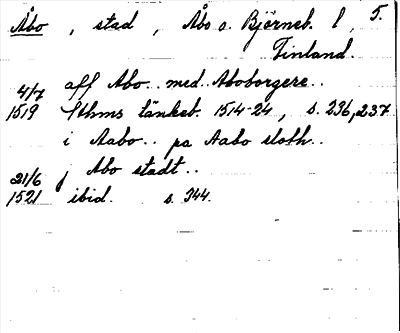 Åbo, stad, Åbo o. Björneb. l 5.
Finland.
4/7 aff Abo.. med Aboborgere..
1519 Sthms tänkeb. 1514-24, s. 236, 237
i Aabo.. pa Aabo sloth..
21/6 j Abo stadt..
1521 ibid. s. 344.